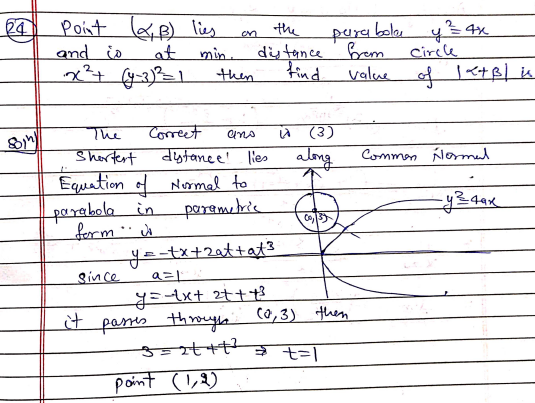 24 Point (α,β) lies on the parabola y²=4x
and is at min. distance from circle
x²+ (y-3)²=1 then find value of |α+β| is
Solⁿ) The Correct ans is (3)
Shortest distance' lies along Common Normal
Equation of Normal to
parabola in parametric
form is
(0,3)
y²=4ax
y=-tx+2at+at³
since a=1
y=-tx+ 2t+t³
it passes through (0,3) then
3=2t+t³ ⇒ t=1
point (1,2)